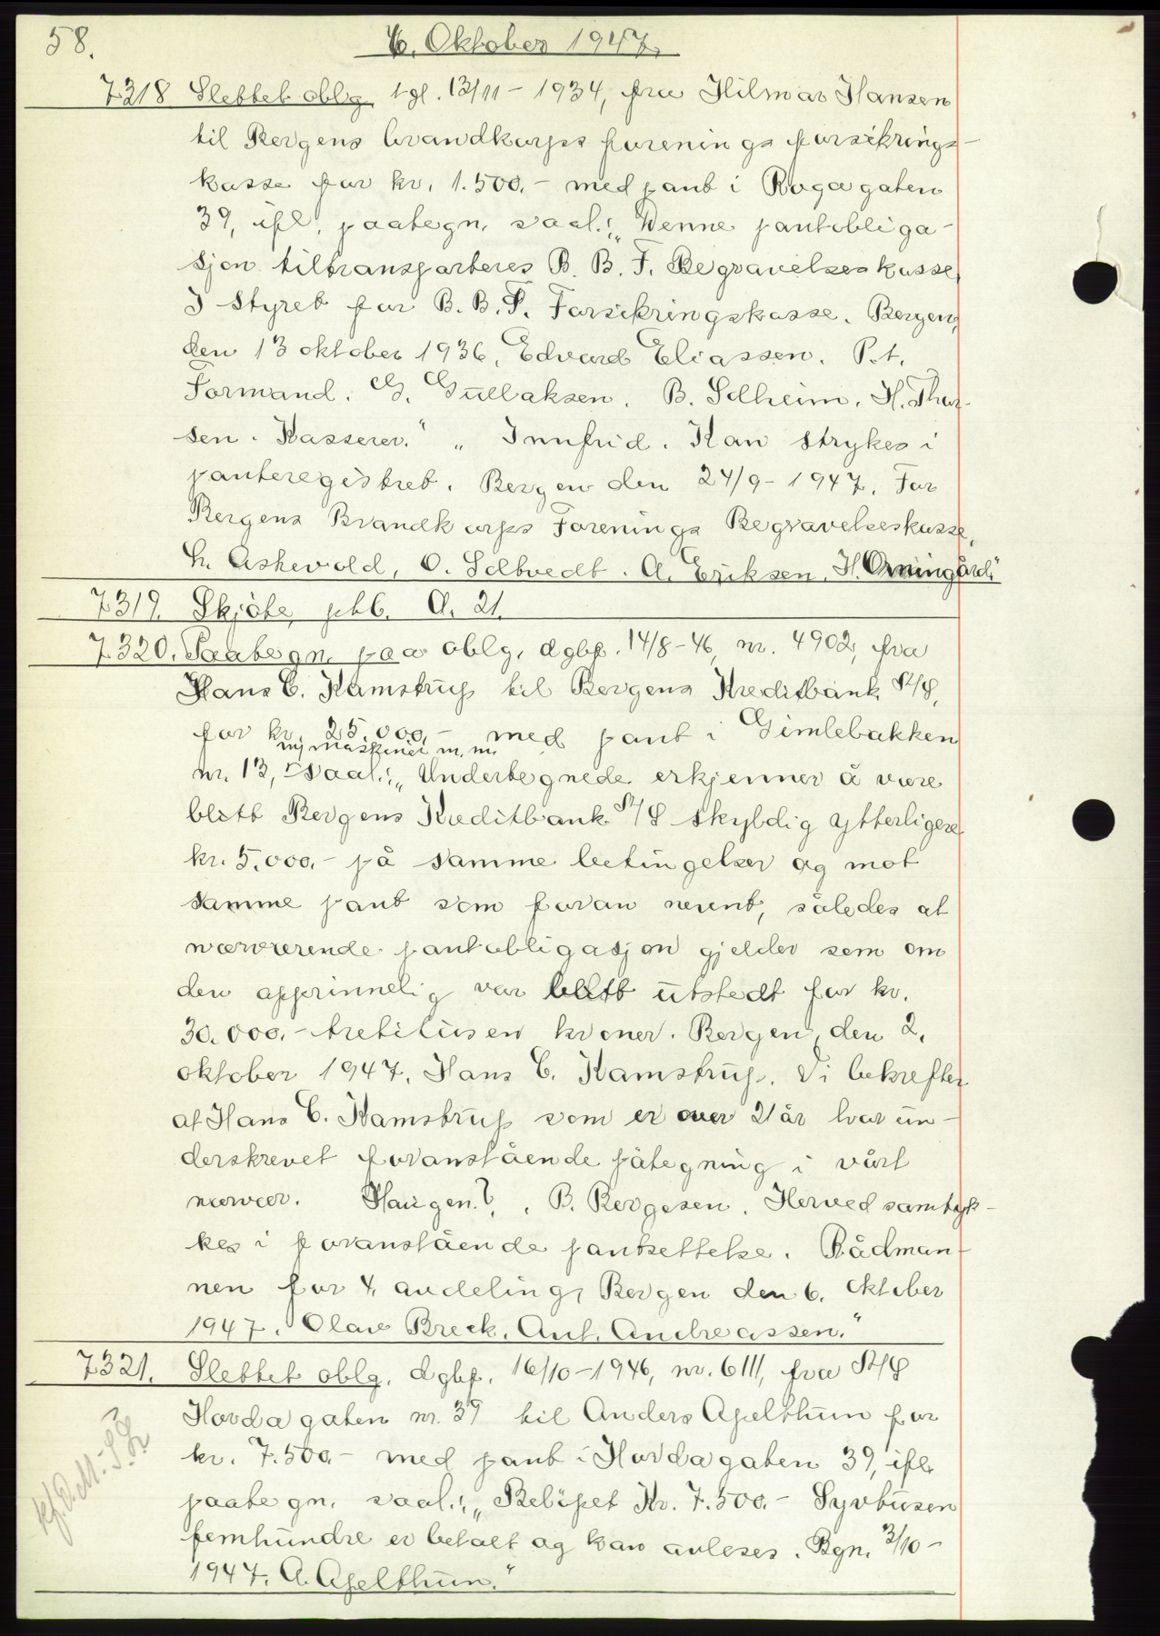 58.
6. Oktober 1947.
7318 Slettet oblg. tgl. 13/11 - 1934, fra Hilmar Hansen
til Bergens brandkorps forenings forsikrings-
kasse for kr. 1.500.- med pant i Roga gaten
39, ifl. paategn. saal.: „Denne pantobliga-
sjon tiltransporteres B. B. F. Begravelseskasse,
I Styret for B. B. F. Forsikringskasse. Bergen,
den 13 oktober 1936. Edvard Eliassen. P.t.
Formand. G. Gullaksen. B. Solheim. H. Thor-
sen. Kasserer." „Innfrid. Kan strykes i
panteregistret. Bergen den 24/9 - 1947. For
Bergens Brandkorps Forenings Begravelseskasse,
h. Askevold, O. Soltvedt. A. Eriksen. H.
7319. Skjöte, ptb. A. 21.
7320. Paategn. paa oblg. dgbf. 14/8 - 46, nr. 4902, fra
Hans C. Kamstrup til Bergens Kreditbank A/S,
for kr. 25.000.- med pant i Gimlebakken
nr. 13, m/maskiner m.m. saal.: „Undertegnede erkjenner å være
blitt Bergens Kreditbank A/S skyldig ytterligere
kr. 5.000.- på samme betingelser og mot
samme pant som foran nevnt, således at
nærværende pantobligasjon gjelder som om
den opprinnelig var blitt utstedt for kr.
30.000.- trettitusen kroner. Bergen, den 2.
oktober 1947. Hans C. Kamstrup. Vi bekrefter
at Hans C. Kamstrup som er over 21 år har un-
derskrevet foranstående påtegning i vårt
nærvær. Haugen ?, . B. Bergesen. Herved samtyk-
kes i foranstående pantsettelse. Rådman-
nen for 4. avdeling, Bergen den 6. oktober
1947. Olav Breck. Ant. Andreassen."
7321. Slettet oblg. dgbf. 16/10 - 1946, nr. 6111, fra A/S
Hordagaten nr. 39 til Anders Apelthun for
kr. 7.500.- med pant i Hordagaten 39, ifl.
paategn. saal.: „Belöpet Kr. 7.500.- Syvtusen
femhundre er betalt og kan avleses. Bgn. 3/10 -
1947. A. Apelthun."